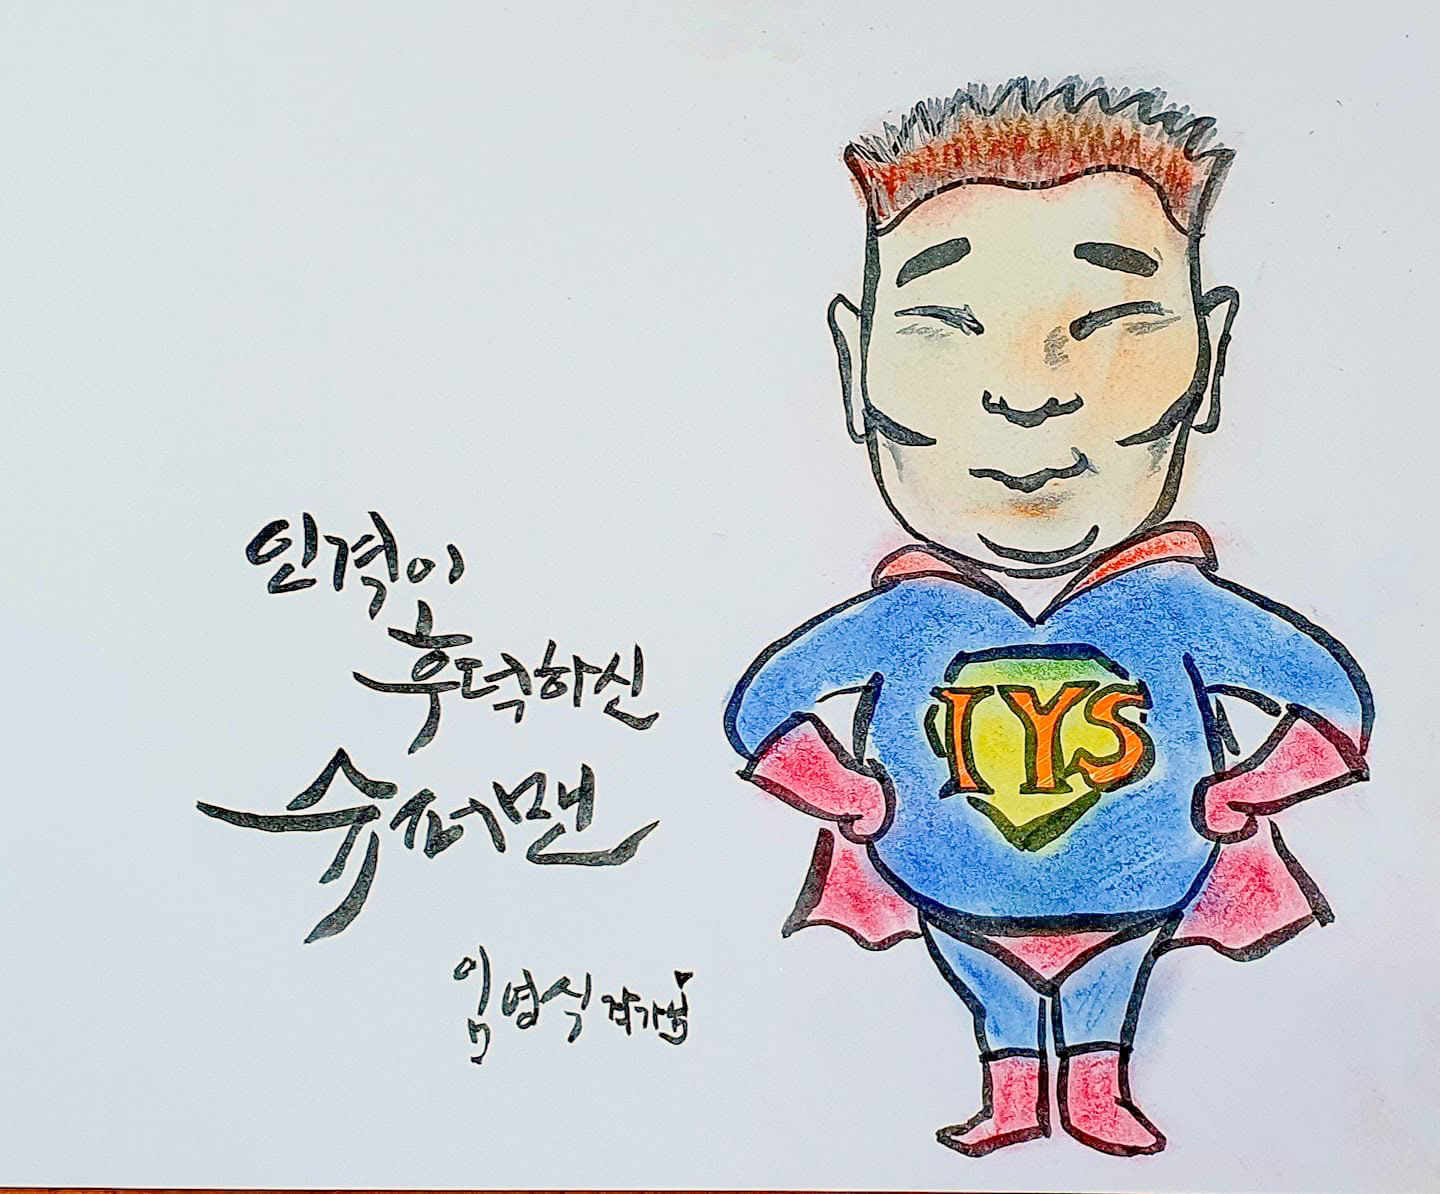 인격이
후덕하신
슈퍼맨
임영식 작가님
IYS